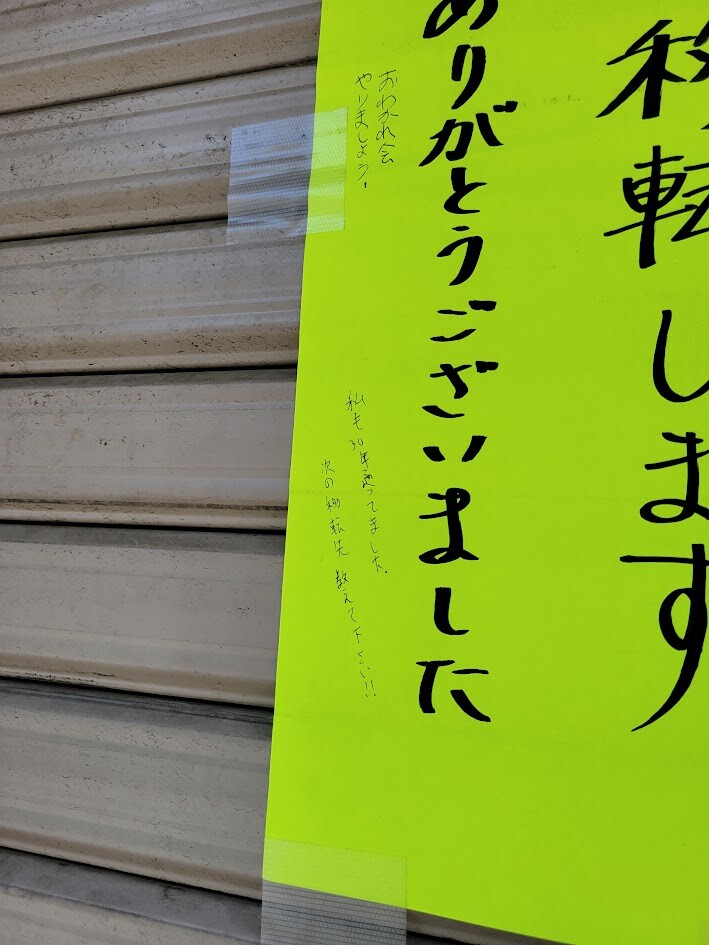 移転します
ありがとうございました
おわかれ会
やりましょう!
私も30年通ってました。
次の移転先 教えて下さい!!